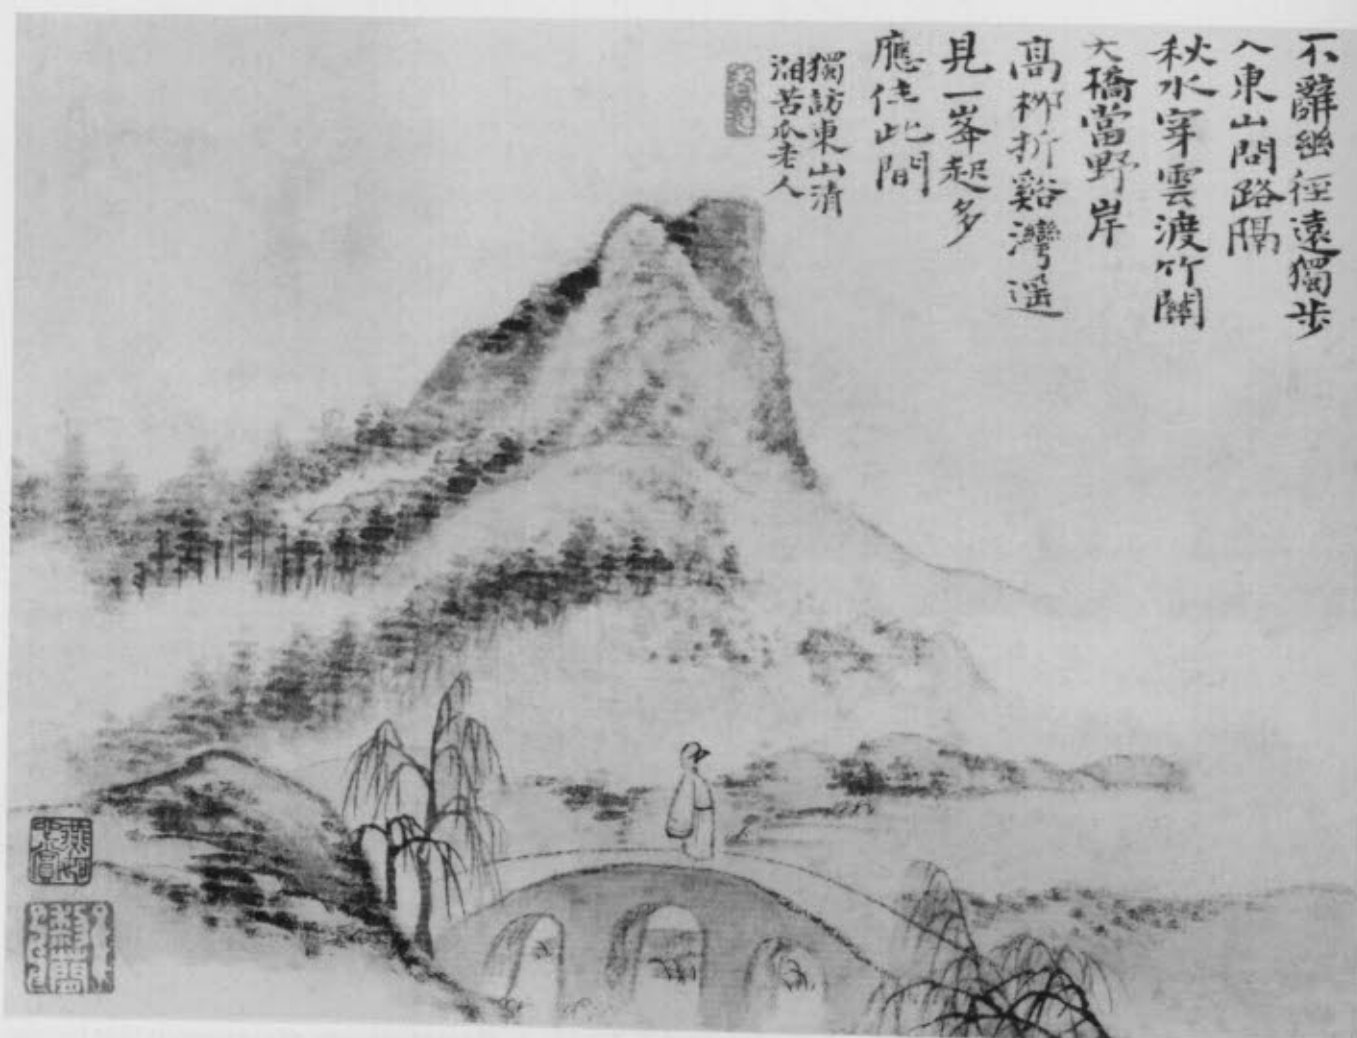 不辭幽徑遠獨步
入東山問路隔
秋水穿雲渡竹關
大橋當野岸
高柳折谿灣遥
見一峯起多
應佳此間
獨訪東山清
湘苦瓜老人